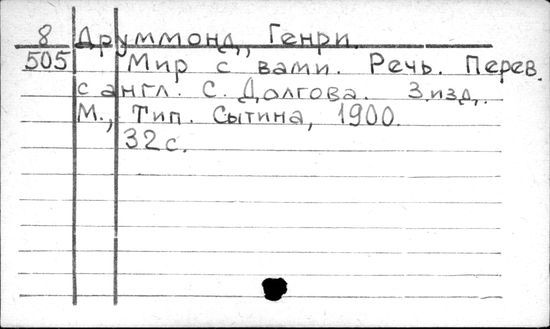 8 Друммонд, Генри.
505 Мир с вами. Речь. Перев.
с англ. С. Долгова. 3.изд.
М., Тип. Сытина, 1900.
32 с.